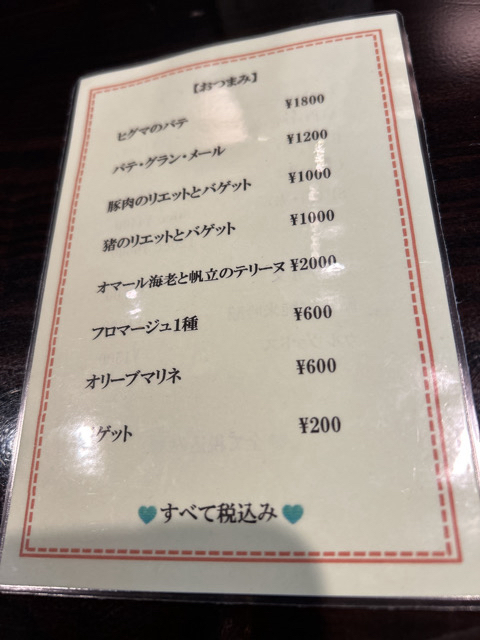 【おつまみ】
ヒグマのパテ ¥1800
パテ・グラン・メール ¥1200
豚肉のリエットとバゲット ¥1000
猪のリエットとバゲット ¥1000
オマール海老と帆立のテリーヌ ¥2000
フロマージュ1種 ¥600
オリーブマリネ ¥600
バゲット ¥200
すべて税込み